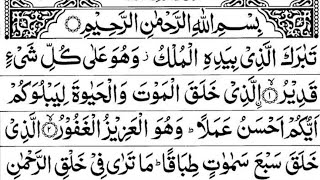 بِسْمِ اللّٰهِ الرَّحْمٰنِ الرَّحِيْمِ ۝
تَبٰرَكَ الَّذِيْ بِيَدِهِ الْمُلْكُ ز وَهُوَ عَلٰى كُلِّ شَيْءٍ
قَدِيْرُۙ ۝۱ الَّذِيْ خَلَقَ الْمَوْتَ وَالْحَيٰوةَ لِيَبْلُوَكُمْ
اَيُّكُمْ اَحْسَنُ عَمَلًا ؕ وَهُوَ الْعَزِيْزُ الْغَفُوْرُۙ ۝۲ الَّذِيْ
خَلَقَ سَبْعَ سَمٰوٰتٍ طِبَاقًا ؕ مَا تَرٰى فِيْ خَلْقِ الرَّحْمٰنِ